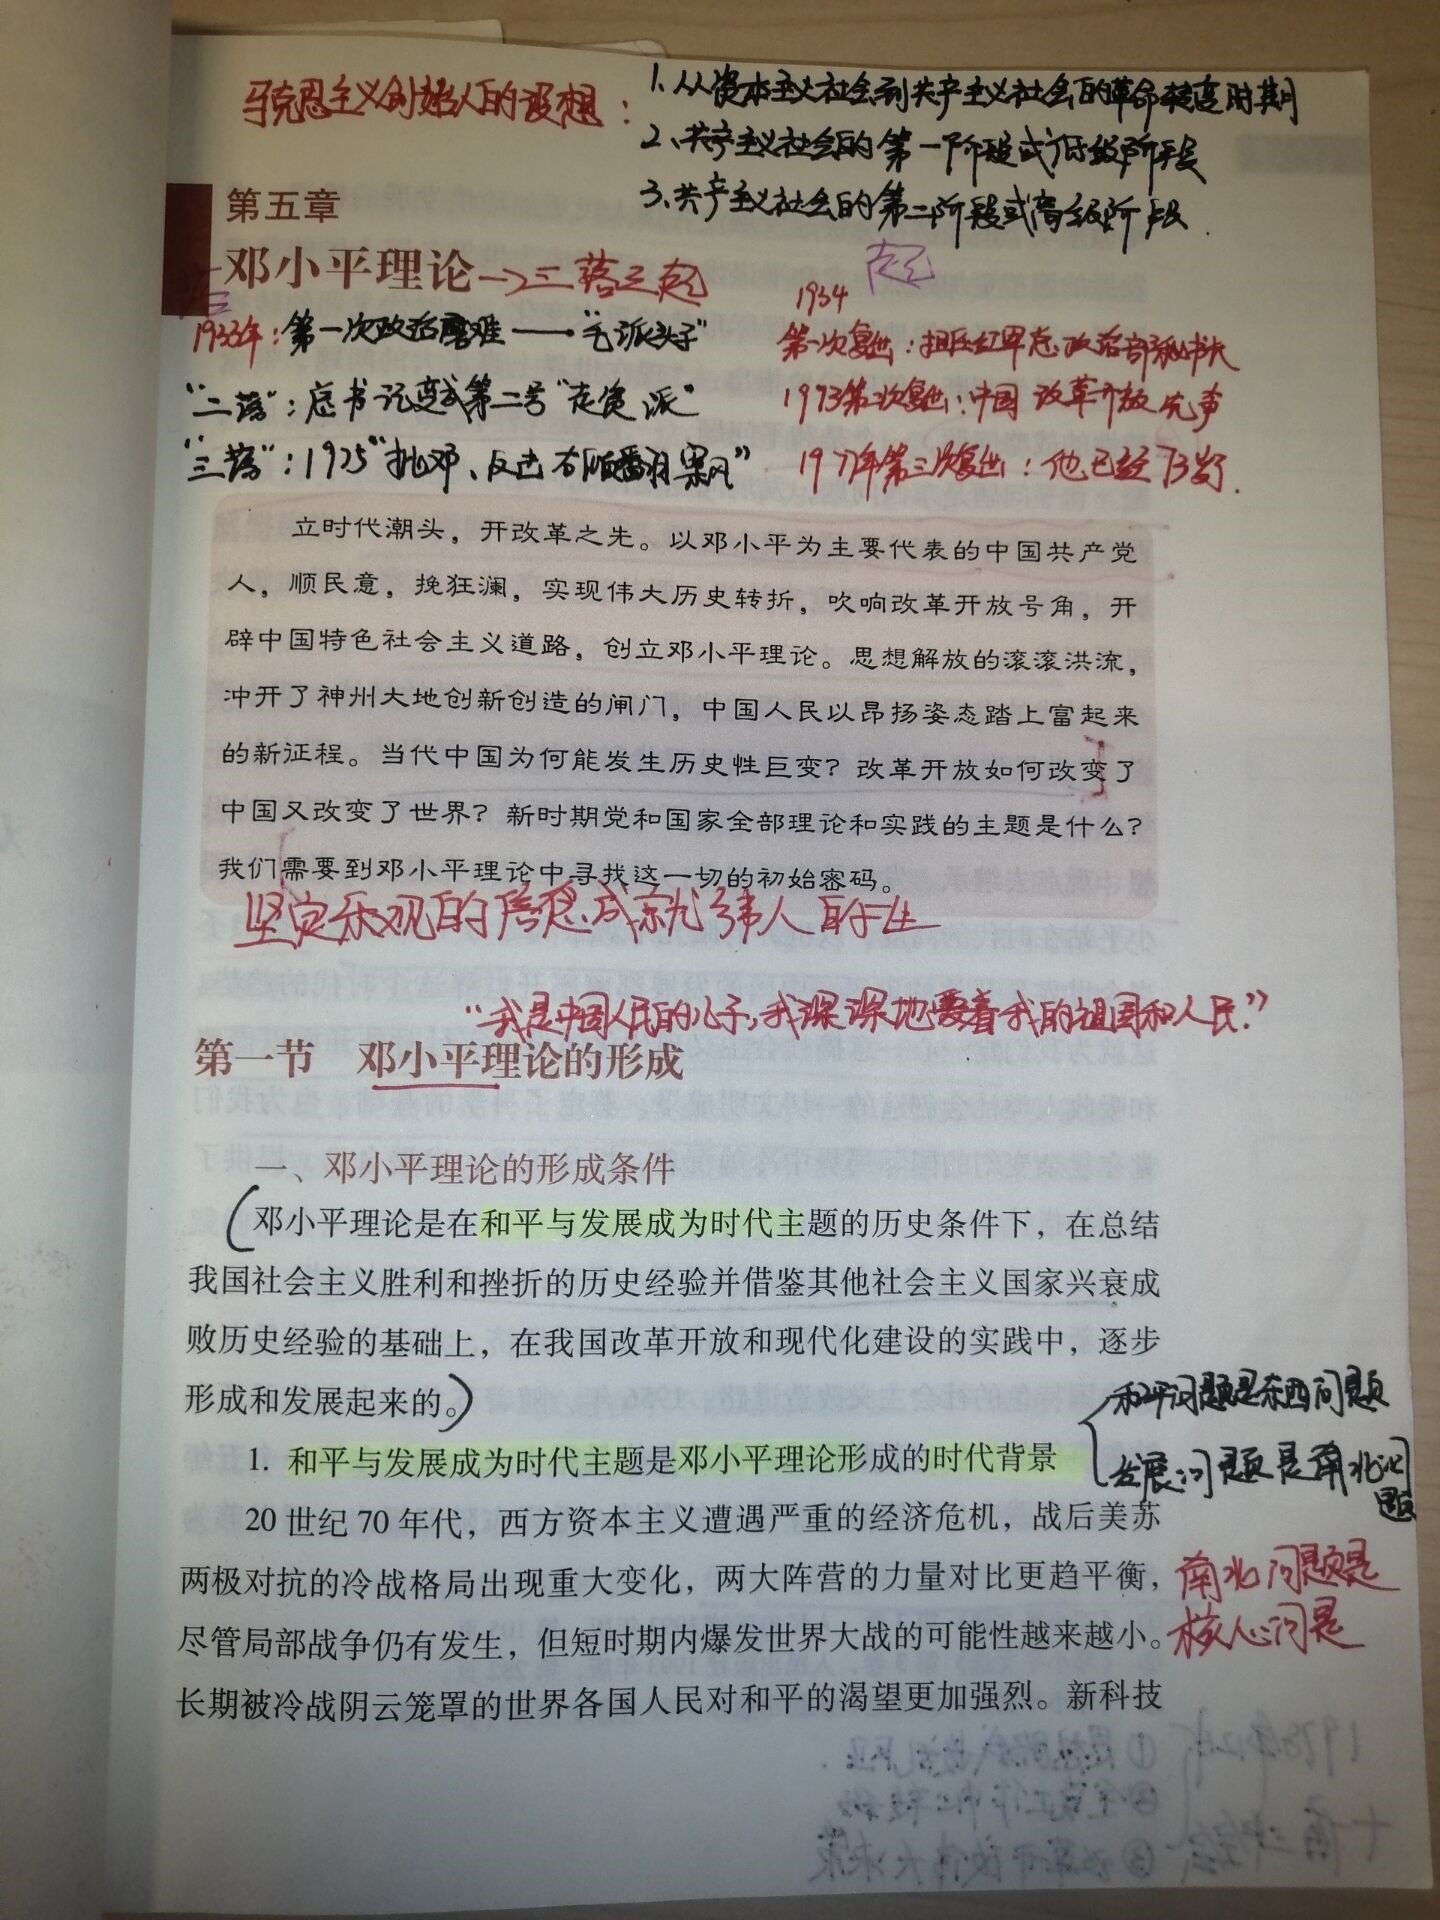 马克思主义创始人的设想：
1.从资本主义社会到共产主义社会的革命转变时期
2.共产主义社会的第一阶段或低级阶段
3.共产主义社会的第二阶段或高级阶段
第五章
邓小平理论→三落三起
起
落
1933年：第一次政治磨难——"毛派头子"
"二落"：总书记变成第二号"走资派"
"三落"：1975"批邓、反击右倾翻案风"
1934
第一次复出：担任红军总政治部秘书长
1973第二次复出：中国改革开放先声
1977年第三次复出：他已经73岁.
立时代潮头，开改革之先。以邓小平为主要代表的中国共产党
人，顺民意，挽狂澜，实现伟大历史转折，吹响改革开放号角，开
辟中国特色社会主义道路，创立邓小平理论。思想解放的滚滚洪流，
冲开了神州大地创新创造的闸门，中国人民以昂扬姿态踏上富起来
的新征程。当代中国为何能发生历史性巨变？改革开放如何改变了
中国又改变了世界？新时期党和国家全部理论和实践的主题是什么？
我们需要到邓小平理论中寻找这一切的初始密码。
坚定乐观的信念成就伟人
"我是中国人民的儿子，我深深地爱着我的祖国和人民."
第一节 邓小平理论的形成
一、邓小平理论的形成条件
（邓小平理论是在和平与发展成为时代主题的历史条件下，在总结
我国社会主义胜利和挫折的历史经验并借鉴其他社会主义国家兴衰成
败历史经验的基础上，在我国改革开放和现代化建设的实践中，逐步
形成和发展起来的。）
和平问题是东西问题
发展问题是南北问
题
1. 和平与发展成为时代主题是邓小平理论形成的时代背景
20 世纪 70 年代，西方资本主义遭遇严重的经济危机，战后美苏
两极对抗的冷战格局出现重大变化，两大阵营的力量对比更趋平衡，
尽管局部战争仍有发生，但短时期内爆发世界大战的可能性越来越小。
长期被冷战阴云笼罩的世界各国人民对和平的渴望更加强烈。新科技
南北问题是
核心问是